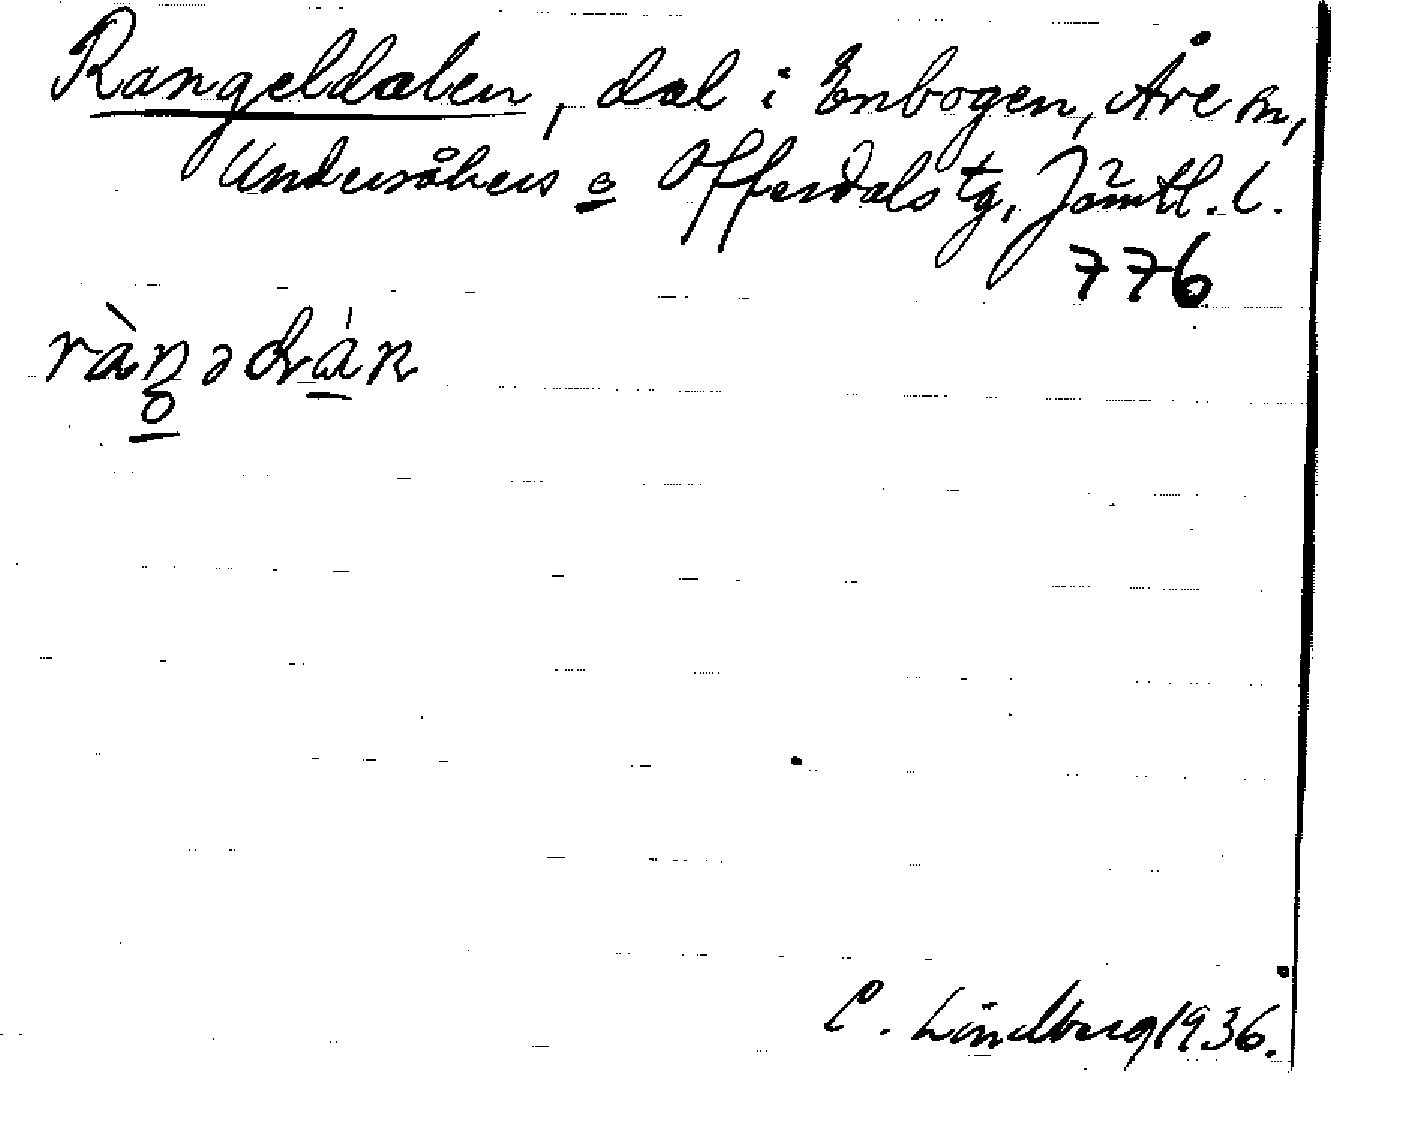 Rangeldalen, dal i Enbogen, Åre sn,
Undersåkers o Offerdals tg, Jämtl. l.
776
C. Lindberg 1936.